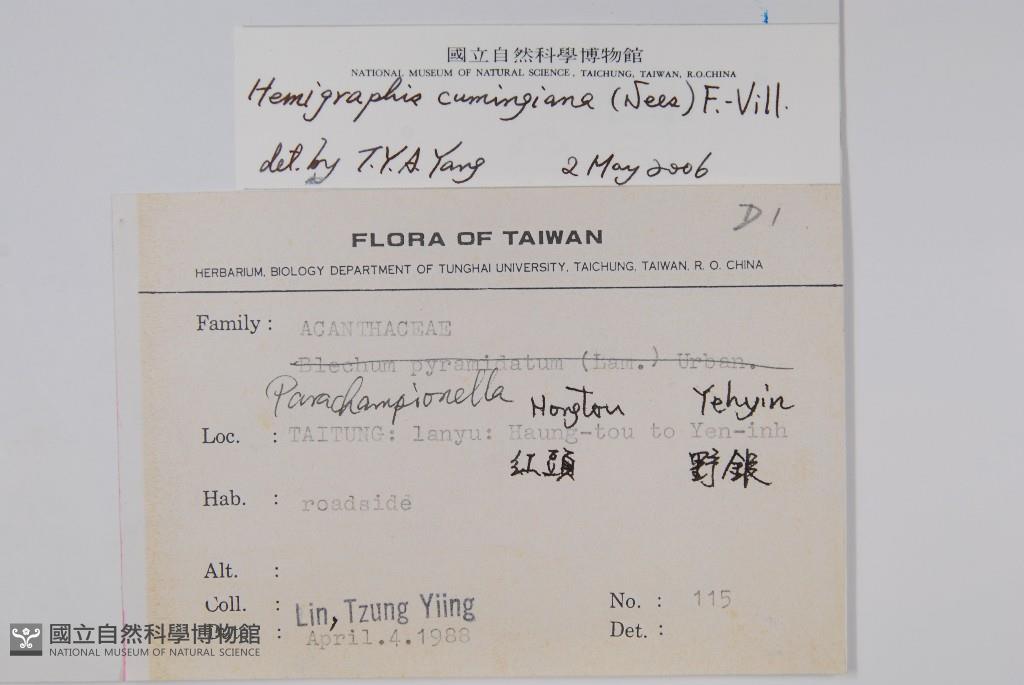 國立自然科學博物館
NATIONAL MUSEUM OF NATURAL SCIENCE, TAICHUNG, TAIWAN, R.O.CHINA
Hemigraphis cumingiana (Nees) F.-Vill.
det. by T.Y.A. Yang 2 May 2006
D1
FLORA OF TAIWAN
HERBARIUM, BIOLOGY DEPARTMENT OF TUNGHAI UNIVERSITY, TAICHUNG, TAIWAN, R. O. CHINA
Family : ACANTHACEAE
Blechum pyramidatum (Lam.) Urban.
Parachampionella Hongtou Yehyin
Loc. : TAITUNG: lanyu: Haung-tou to Yen-inh
紅頭 野銀
Hab. : roadside
Alt. :
Coll. : Lin, Tzung Yiing No. : 115
: April.4.1988 Det. :
國立自然科學博物館
NATIONAL MUSEUM OF NATURAL SCIENCE